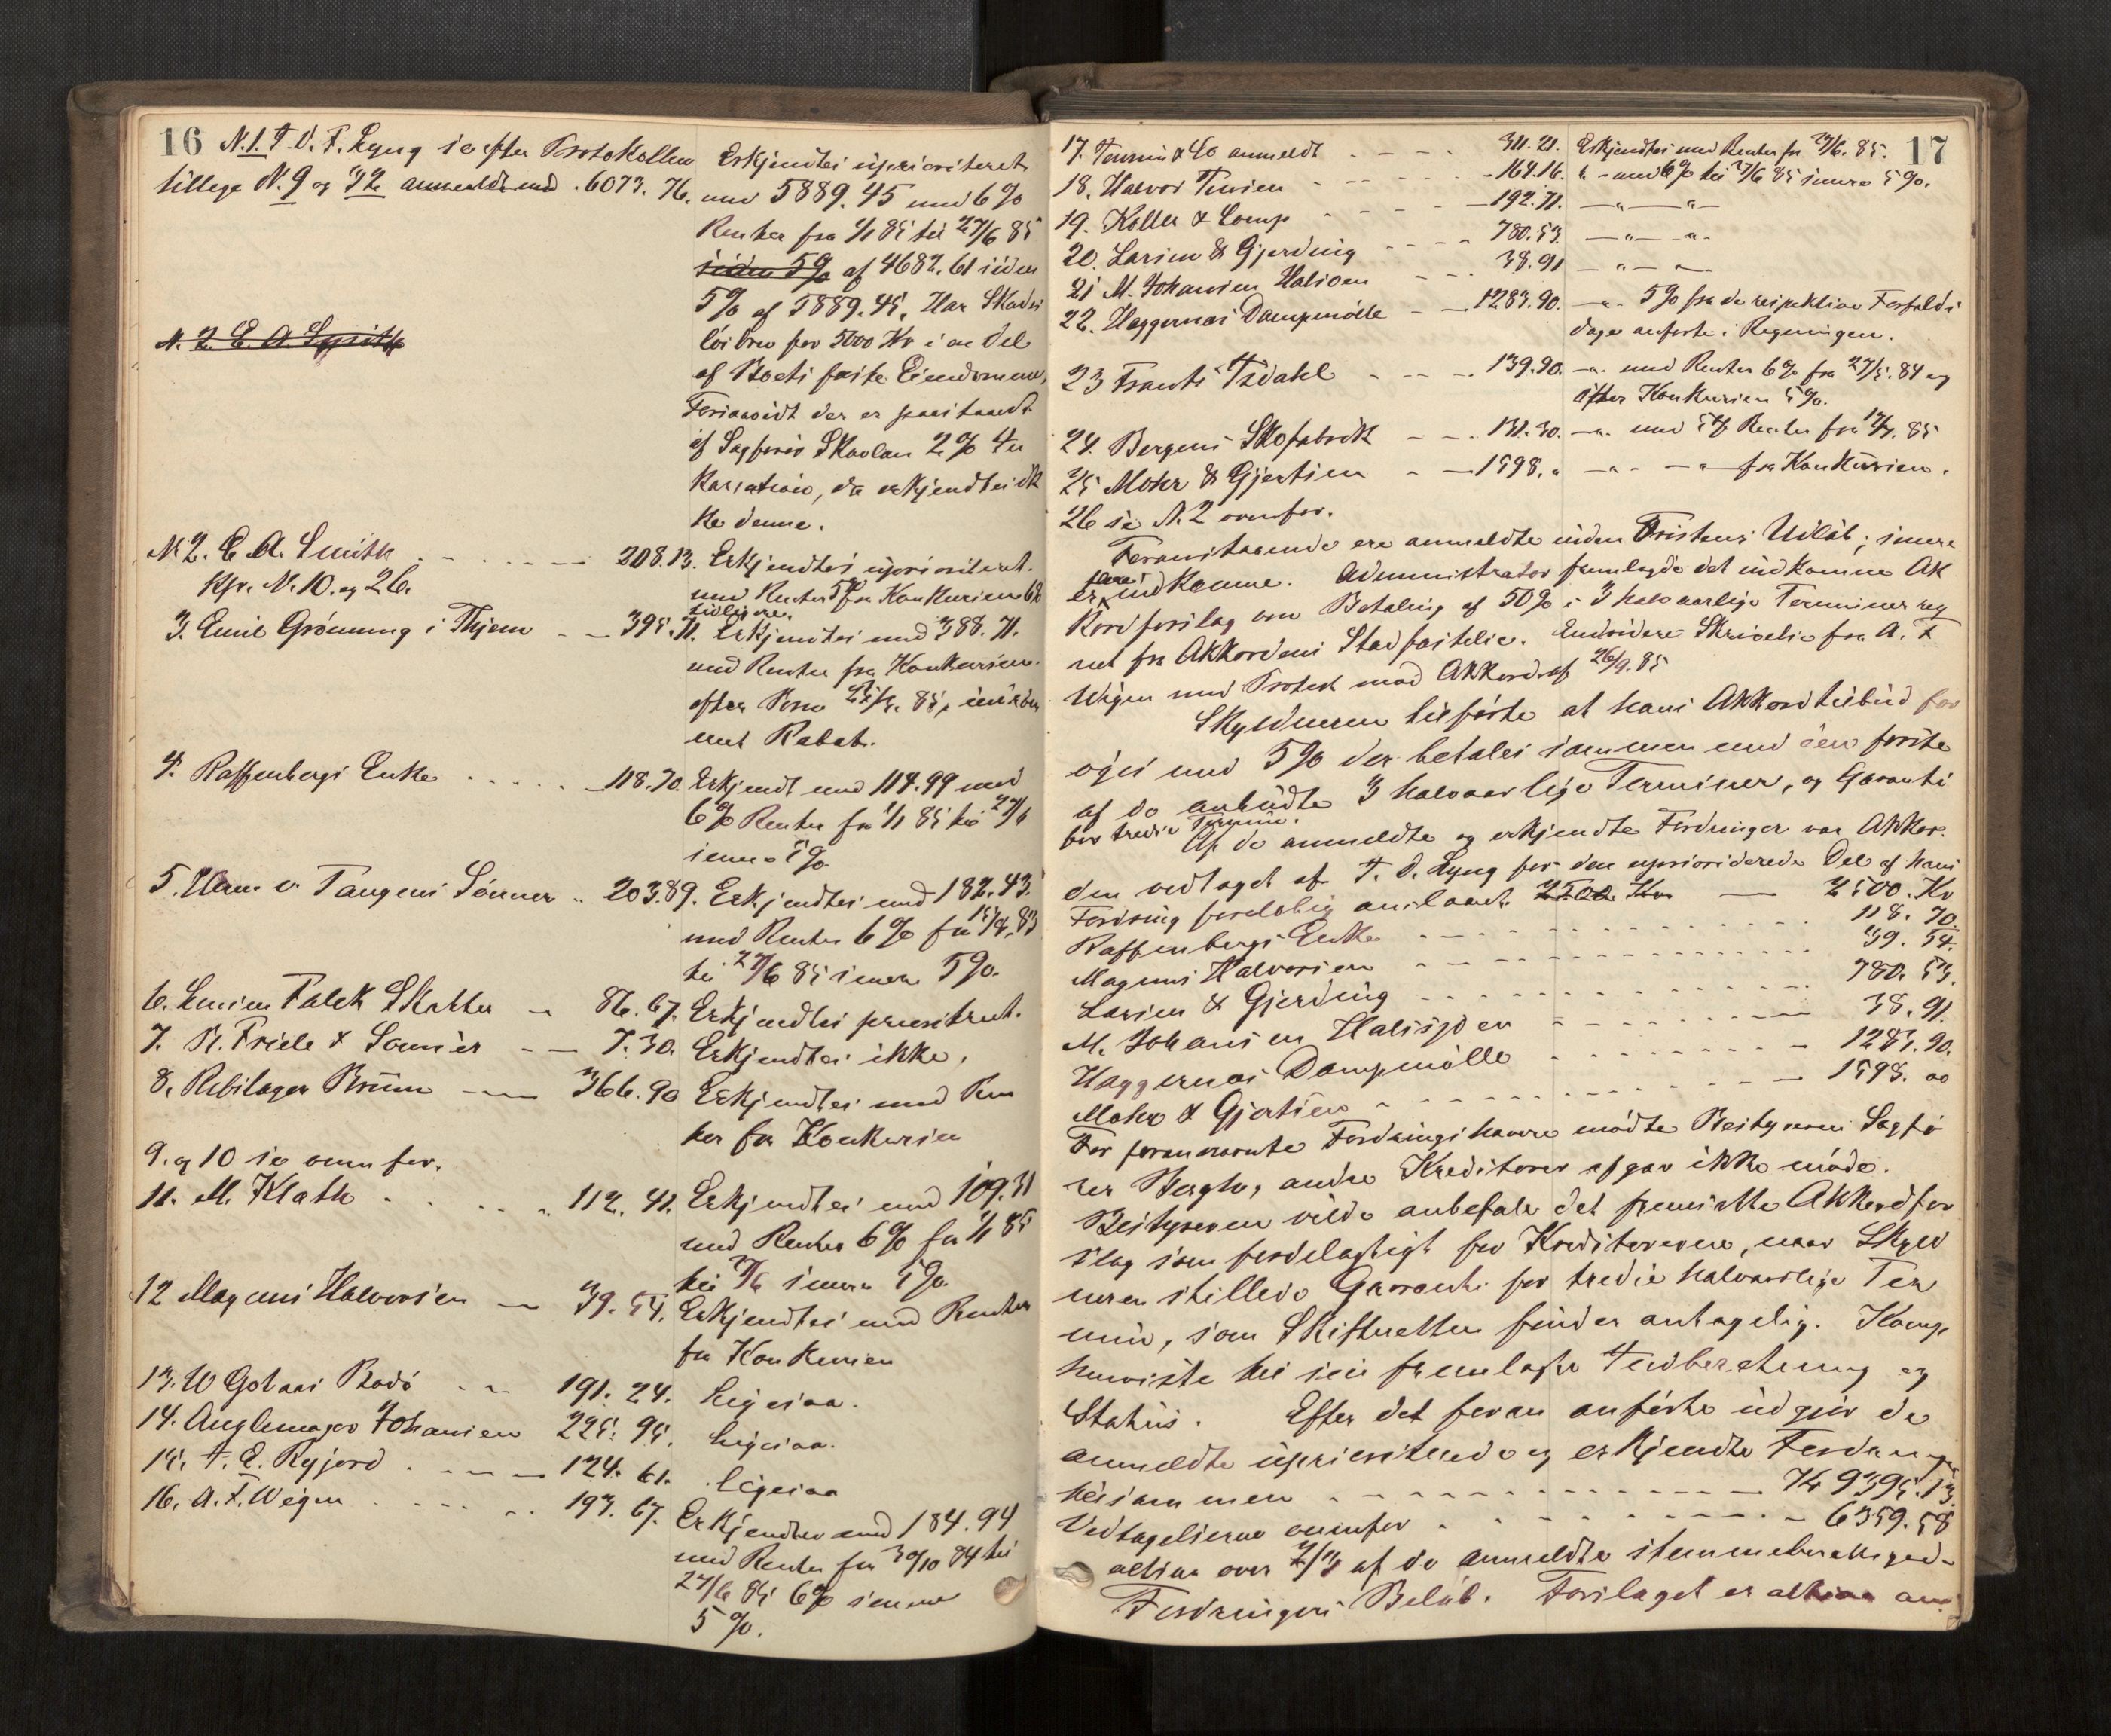 16 N. 1. J. D. F. Lyng se efter Protokollen
tillige N. 9 og 32 anmeldt med . 6073. 76.
Erkjendtes uprioriteret
med 5889. 45 med 6 %
Renter fra 1/1 85 til 27/6 85
siden 5% af 4682. 61 siden
5% af 5889. 45, Har Skades
løsbrev for 5000 Kr i en Del
af Boets faste Eiendomme,
Forsaavidt der er paastaaet
af Sagfører Skavlan 2 % In
kassation, da erkjendtes ik
ke denne.
N. 2. E. A. Smith
N 2. E. A. Smith . - . - - - 208. 13. Erkjendtes uprioriteret.
Kfr. N. 10. og 26.
med Renter 5% fra Konkursen 6%
tidligere.
3. Emil Grønning i Thjem - - 395. 71. Erkjendtes med 388. 71.
med Renter fra Konkursen
efter 85,
met Rabat.
4. Raffenbergs Enke . . . . . - 118. 70. Erkjendt med 114. 99 med
6% Renter fra 1/1 85 til 27/6
senere 5 %
5. Herm v. Tangens Sønner .. 203.89. Erkjendtes med 182. 43.
med Renter 6 % fra 85
til 27/6 85 senere 5 %.
6. Falck Skatter - 86. 67. Erkjendtes prioriteret.
7. B. Friele & Sønner - - 7. 30. Erkjendtes ikke.
8. Rebslager Bruun - - 366. 90 Erkjendtes med Ren
ter fra Konkursen
9. og 10 se ovenfor.
11. M. Klath . . . . . 112. 41. Erkjendtes med 109. 31
med Renter 6 % fra 1/1 85
til 27/6 senere 5 %
12 Magnus Halvorsen - 39. 54. Erkjendtes med Renter
fra Konkursen
13. W Gotaas Bodø . - - 191. 24. ligesaa.
14. Johansen 225. 95. ligesaa.
15. J. E. Ryjord . - - - 124. 61. ligesaa
16. A. F. Wigen . . - - - 193. 67. Erkjendtes med 184. 94
med Renter fra 30/10 84 til
27/6 85 6% senere
5 %.
17
17. & Co anmeldt . - - - 311. 21. Erkjendtes med Renter fra 27/6. 85.
18. Halvor - - - - - 164. 16. " - med 6% til 27/6 85 senere 5 %.
19. Koller & Comp - - - - 192. 71. - " - " -
20. Larsen & Gjerding - - - - 780. 53. - " - " -
21 M. Johansen Halsøen - - - 38. 91 - " - " -
22. Haggernæs Dampmølle - - 1283. 90. - " - 5% fra de respektive Forfalds
dage anførte i Regningen.
23 Frants Isdahl - - - . 139. 90. - " - med Renter 6% fra 27/5. 84 og
efter Konkursen 5 %.
24. Bergens Skofabrik - - - 131. 30. - " - med 5% Renter fra 85
25 Mohr & Gjertsen - - 1598. " - " - - " - fra Konkursen.
26 se N. 2 ovenfor.
Foranstaaende ere anmeldte inden Fristens Udløb; senere
er flere indkomne. Administrator fremlagde det indkomne Ak
kordforslag om Betaling af 50% i 3 halvaarlige Terminer reg
net fra Akkordens Stadfæstelse. Endvidere Skrivelse fra A. F
Wigen med Protest mod Akkord af 26/9. 85
Skyldneren tilførte at hans Akkordtilbud for
øges med 5% der betales sammen med den første
af de anbudte 3 halvaarlige Terminer, og Garanti
for tredie Termin.
Af de anmeldte og erkjendte Fordringer var Akkor-
den vedtaget af J. D. Lyng for den uprioriterede Del af hans
Fordring foreløbig anslaaet 2500 Kr - 2500. Kr
Raffenbergs Enke . - . - . . . . . . . 118. 70.
Magnus Halvorsen - - - - - - - - 39. 54.
Larsen & Gjerding - - - - - - - - 780. 53.
M. Johansen Halsøen - - - - - - 38. 91.
Haggernæs Dampmølle - - - - - - 1283. 90.
Mohr & Gjertsen - - - - - - - - 1598. oo
For forannævnte Fordringshavere mødte Bestyreren Sagfø
rer Bergh, andre Kreditorer afgav ikke møde.
Bestyreren vilde anbefale det fremsatte Akkordfor
slag som fordelagtigt for Kreditorerne, naar Skyld
neren stillede Garanti for tredie halvaarlige Ter
min, som Skifteretten finder antagelig. Komp
henviste til sin fremlagte Indberetning og
Status. Efter det foran anførte udgjør de
anmeldte uprioriterede og erkjendte Fordringer
tilsammen . - - - - - - - - Kr 9395. 13.
Vedtagelserne ovenfor . - - - - - - 6359. 58
altsaa over 2/3 af de anmeldte stemmeberettigede
Fordringers Beløb. Forslaget er altsaa an